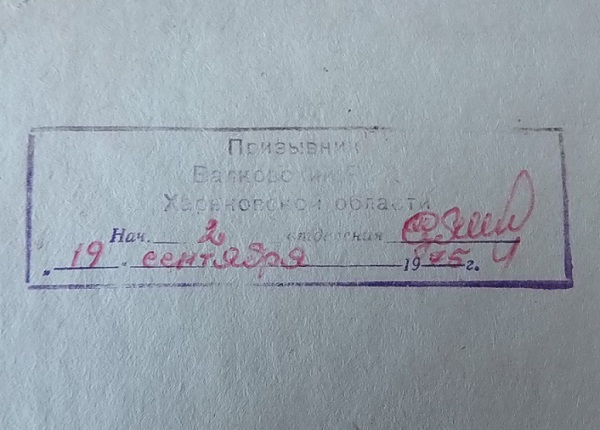 Призывник
Валковский Р
Харьковской области
Нач. 2 отделения
19 сентября 1975 г.